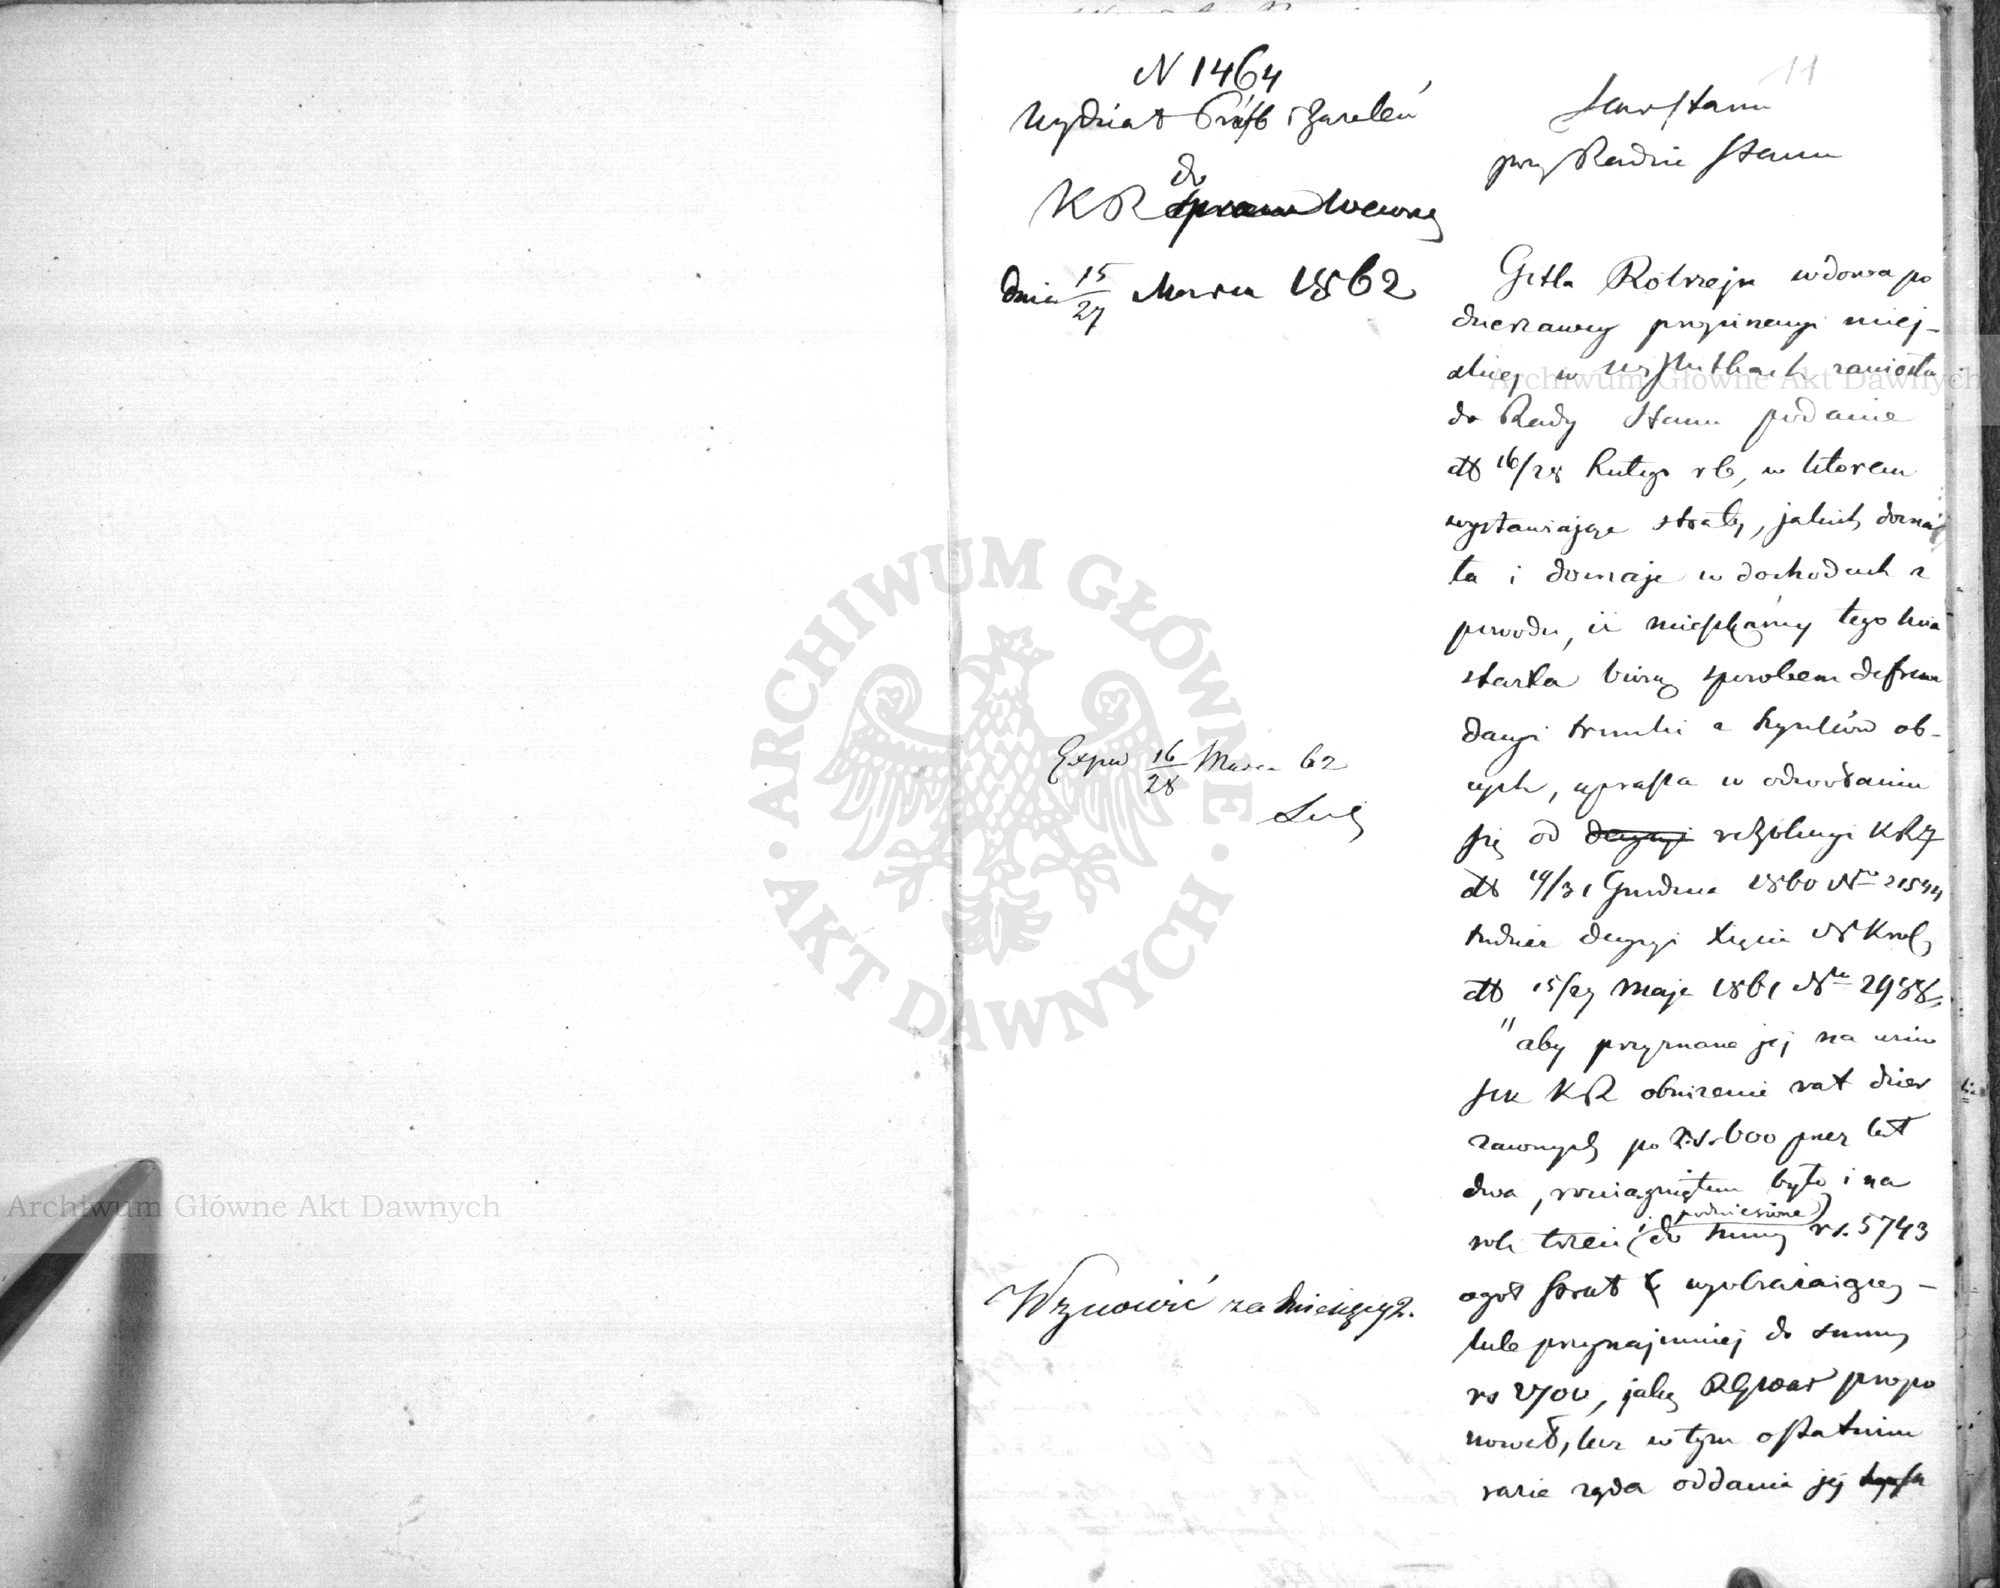 11
N 1464
Wydział Próśb i Zażaleń
do
KR Spraw Wewnę
dnia 15/27 Marca 1862
Sekr Stanu
przy Radzie Stanu
Gitla wdowa po
dzierżawcy propinacyi miej-
skiej w zaniosła
do Rady Stanu podanie
dtt 16/28 Lutego rb, w którem
wystawiając straty, jakich dozna
ła i doznaje w dochodach z
powodu, iż mieszkańcy tego mia
steczka biorą sposobem defrau
dacyi trunki z szynków ob-
cych, uprasza w odwołaniu
się od decyzji rezolucyi KR
dtt 19/31 Grudnia 1860 No
tudzież decyzyi Xięcia Król
dtt 15/27 Maja 1861 No 2988
"aby przyznane jej na wnio
sek KR obniżenie rat dzier
żawnych po rs. 600 przez lat
dwa, rozciągniętem było i na
rok trzeci i podniesione
do sumy rs. 5743
ogół strat wyobrażaiącej –
lub przynajmniej do summy
rs 2700, jaką RGWar propo
nował, lecz w tym ostatnim
razie żąda oddania jej
Exped 16/28 Marca 62
Wznowić za dni 2.
ARCHIWUM GŁÓWNE
AKT DAWNYCH
Archiwum Główne Akt Dawnych
Archiwum Główne Akt Dawnych